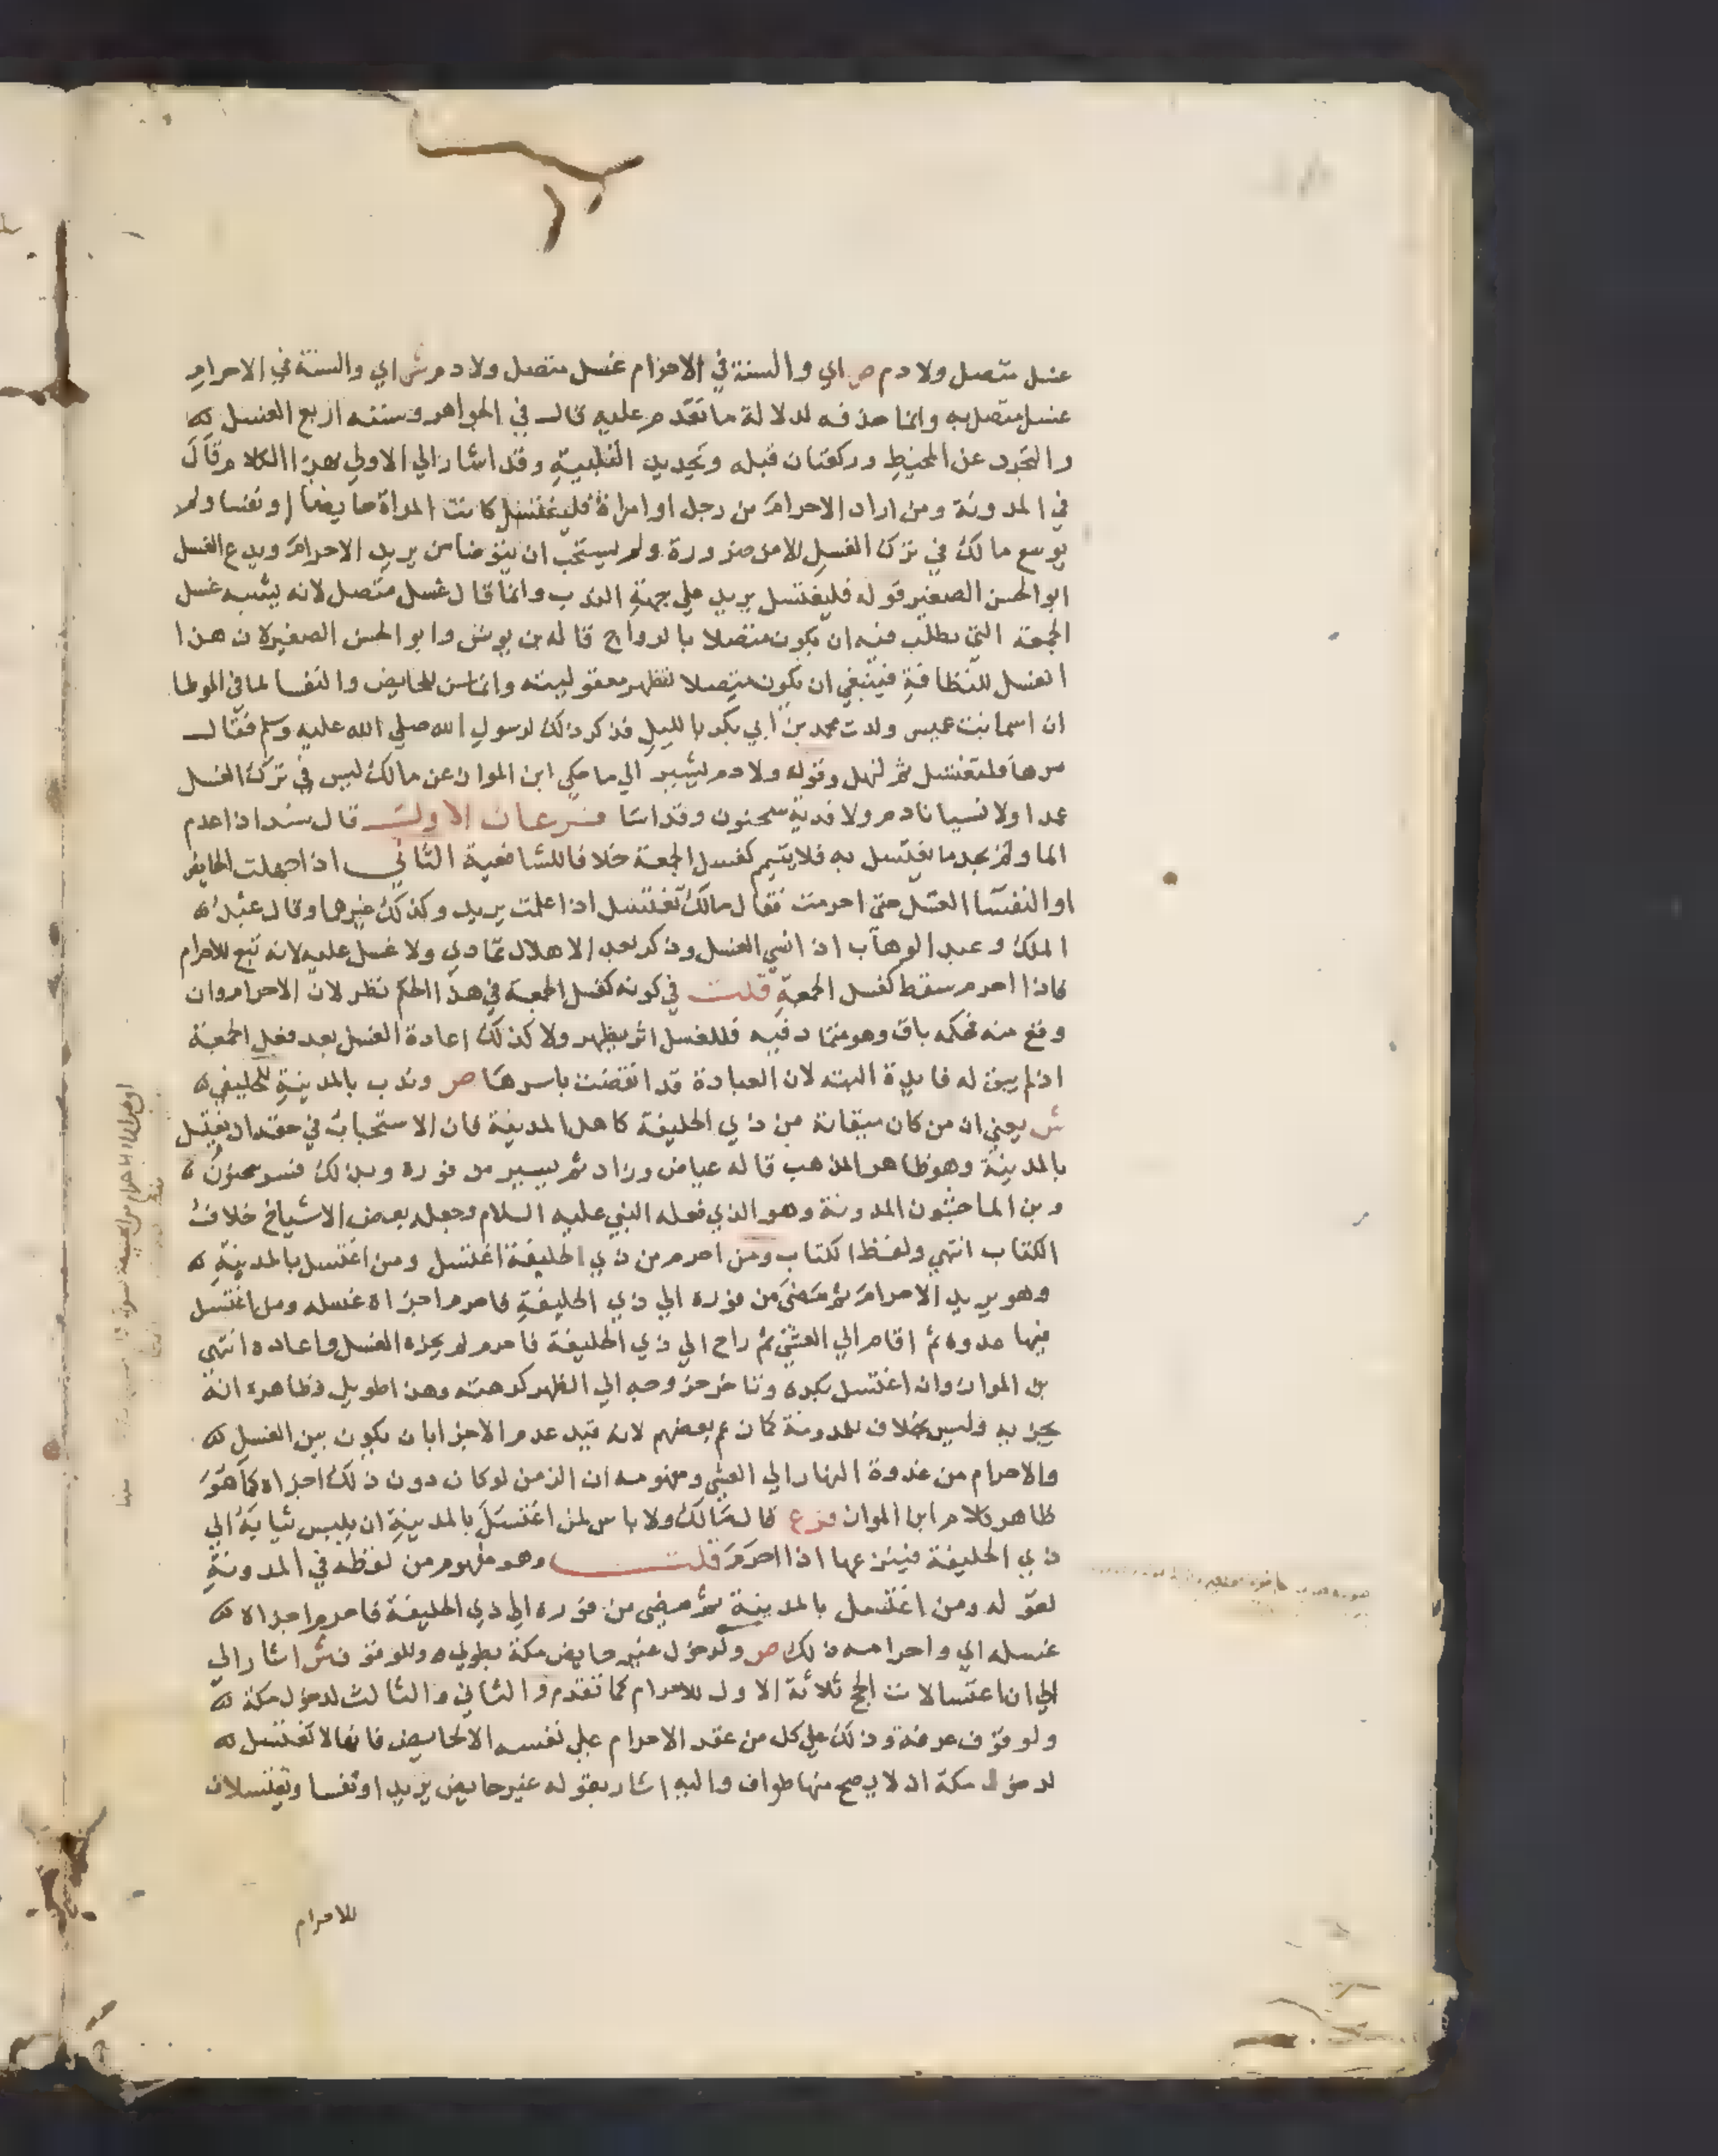 غسل متصل ولا دم ص اي والسنة في الاحرام غسل متصل ولا دم ش اي والسنة في الاحرام
غسل متصل به وانما حذفه لدلالة ما تقدم عليه قال في الجواهر وسننه اربع الغسل له
والتجرد عن المخيط وركعتان قبله وتجديد التلبية وقد اشار الي الاولي بهذا الكلام قال
في المدونة ومن اراد الاحرام من رجل او امراة فليغتسل كانت المراة حايضا او نفسا ولم
يوسع مالك في ترك الغسل الا من ضرورة ولم يستحب ان يتوضا من يريد الاحرام ويدع الغسل
ابو الحسن الصغير قوله فليغتسل يريد علي جهة الندب وانما قال غسل متصل لانه يشبه غسل
الجمعة التي يطلب فيه ان يكون متصلا بالرواح قاله بن يونس وابو الحسن الصغير لان هذا
الغسل للنظافة فينبغي ان يكون متصلا لتظهر معقوليته وانما سن للحايض والنفسا لما في الموطا
ان اسما بنت عميس ولدت محمد بن ابي بكر بالليل فذكر ذلك لرسول الله صلي الله عليه وسلم فقال
مرها فلتغتسل ثم لتهل وقوله ولا دم يشير الي ما حكي ابن المواز عن مالك ليس في ترك الغسل
عمدا ولا نسيانا دم ولا فدية سحنون وقد اسا فرعان الاول قال سند اذا عدم
الما ولم يجد ما يغتسل به فلا يتيمم كغسل الجمعة خلافا للشافعية الثاني اذا جهلت الحايض
او النفسا الغسل حتي احرمت فقال مالك تغتسل اذا علمت يريد وكذلك غيرها وقال عبد
الملك وعبد الوهاب اذا نسي الغسل وذكر بعد الاهلال تمادي ولا غسل عليه لانه تبع للاحرام
فاذا احرم سقط كغسل الجمعة قلت في كونه كغسل الجمعة في هذا الحكم نظر لان الاحرام وان
وقع منه فحكمه باق وهو متماد فيه فللغسل اثر يظهر ولا كذلك اعادة الغسل بعد فعل الجمعة
اذ لم يبق له فايدة البته لان العبادة قد انقضت باسرها ص وندب بالمدينة للحليفي
ش يعني ان من كان ميقاته من ذي الحليفة كاهل المدينة فان الاستحباب في حقه ان يغتسل
بالمدينة وهو ظاهر المذهب قاله عياض وزاد ثم يسير من فوره وبذلك فسر سحنون
وبن الماجشون المدونة وهو الذي فعله النبي عليه السلام وجعله بعض الاشياخ خلاف
الكتاب انتهي ولفظ الكتاب ومن احرم من ذي الحليفة اغتسل ومن اغتسل بالمدينة
وهو يريد الاحرام ثم مضي من فوره الي ذي الحليفة فاحرم اجزاه غسله ومن اغتسل
فيها غدوه ثم اقام الي العشي ثم راح الي ذي الحليفة فاحرم لم يجزه الغسل واعاده انتهي
بن المواز وان اغتسل بكره وتاخر خروجه الي الظهر كرهته وهذا طويل وظاهره انه
يجزيه وليس بخلاف للمدونة كما زعم بعضهم لانه قيد عدم الاجزا بان يكون بين الغسل
والاحرام من غدوة النهار الي العشي ومفهومه ان الزمن لو كان دون ذلك اجزاه كما هو
ظاهر كلام ابن المواز فرع قال مالك ولا باس لمن اغتسل بالمدينة ان يلبس ثيابه الي
ذي الحليفة فينزعها اذا احرم قلت وهو مفهوم من لفظه في المدونة
لقوله ومن اغتسل بالمدينة ثم مضي من فوره الي ذي الحليفة فاحرم اجزاه
غسله اي واحرامه ذلك ص ولدخول غير حايض مكة بطوي وللوقوف ش اشار الي
الي ان اغتسالات الحج ثلاثة الاول للاحرام كما تقدم والثاني والثالث لدخول مكة
ولوقوف عرفة وذلك علي كل من عقد الاحرام علي نفسه الا الحايض فانها لا تغتسل
لدخول مكة اذ لا يصح منها طواف واليه اشار بقوله غير حايض يريد او نفسا وتغتسلان
للاحرام